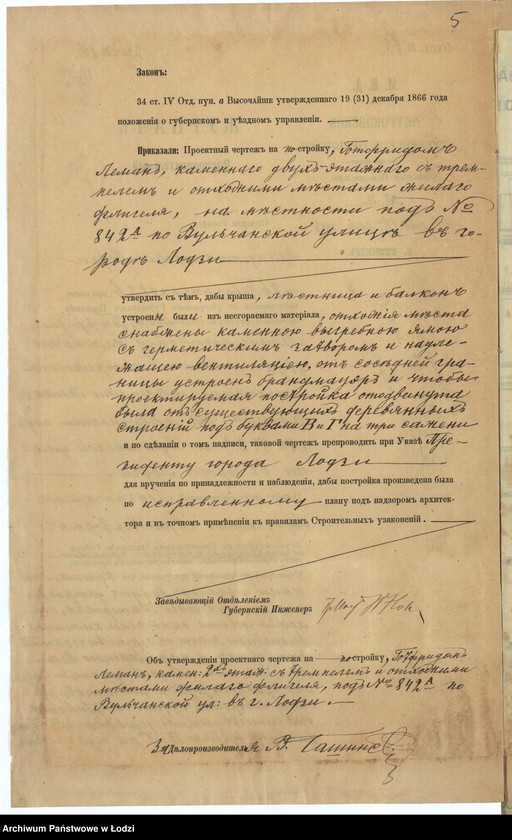 5
Законъ:
34 ст. IV Отд. пун. а Высочайше утвержденнаго 19 (31) декабря 1866 года
положенія о губернскомъ и уѣздномъ управленіи.
Приказали: Проектный чертежъ на постройку, Готфридомъ
Леманъ, каменнаго двухъ-этажнаго съ трем-
пелемъ и отхожими мѣстами жилаго
флигеля, на мѣстности подъ №
842А по Вульчанской улицѣ въ го-
родѣ Лодзи
утвердить съ тѣмъ, дабы крыша, лѣстница и балконъ
устроены были изъ несгораемаго матеріала, отхожія мѣста
снабжены каменною выгребною ямою
съ герметическимъ затворомъ и надле-
жащею вентиляціею, отъ сосѣдней гра-
ницы устроенъ брандмауэръ и чтобы
проектируемая постройка отодвинута
была отъ существующихъ деревянныхъ
строеній подъ буквами В и Г на три сажени
и по сдѣланіи о томъ надписи, таковой чертежъ препроводить при Указѣ Пре-
зиденту города Лодзи
для врученія по принадлежности и наблюденія, дабы постройка произведена была
по исправленному плану подъ надзоромъ архитек-
тора и въ точномъ примѣненіи къ правиламъ Строительныхъ узаконеній.
Завѣдывающій Отдѣленіемъ
Губернскій Инженеръ
Объ утвержденіи проектнаго чертежа на постройку, Готфридомъ
Леманъ, камен: 2хъ этаж: съ тремпелемъ и отхожими
мѣстами жилаго флигеля, подъ № 842А по
Вульчанской ул: въ г. Лодзи.
За Дѣлопроизводителя В.
Archiwum Państwowe w Łodzi